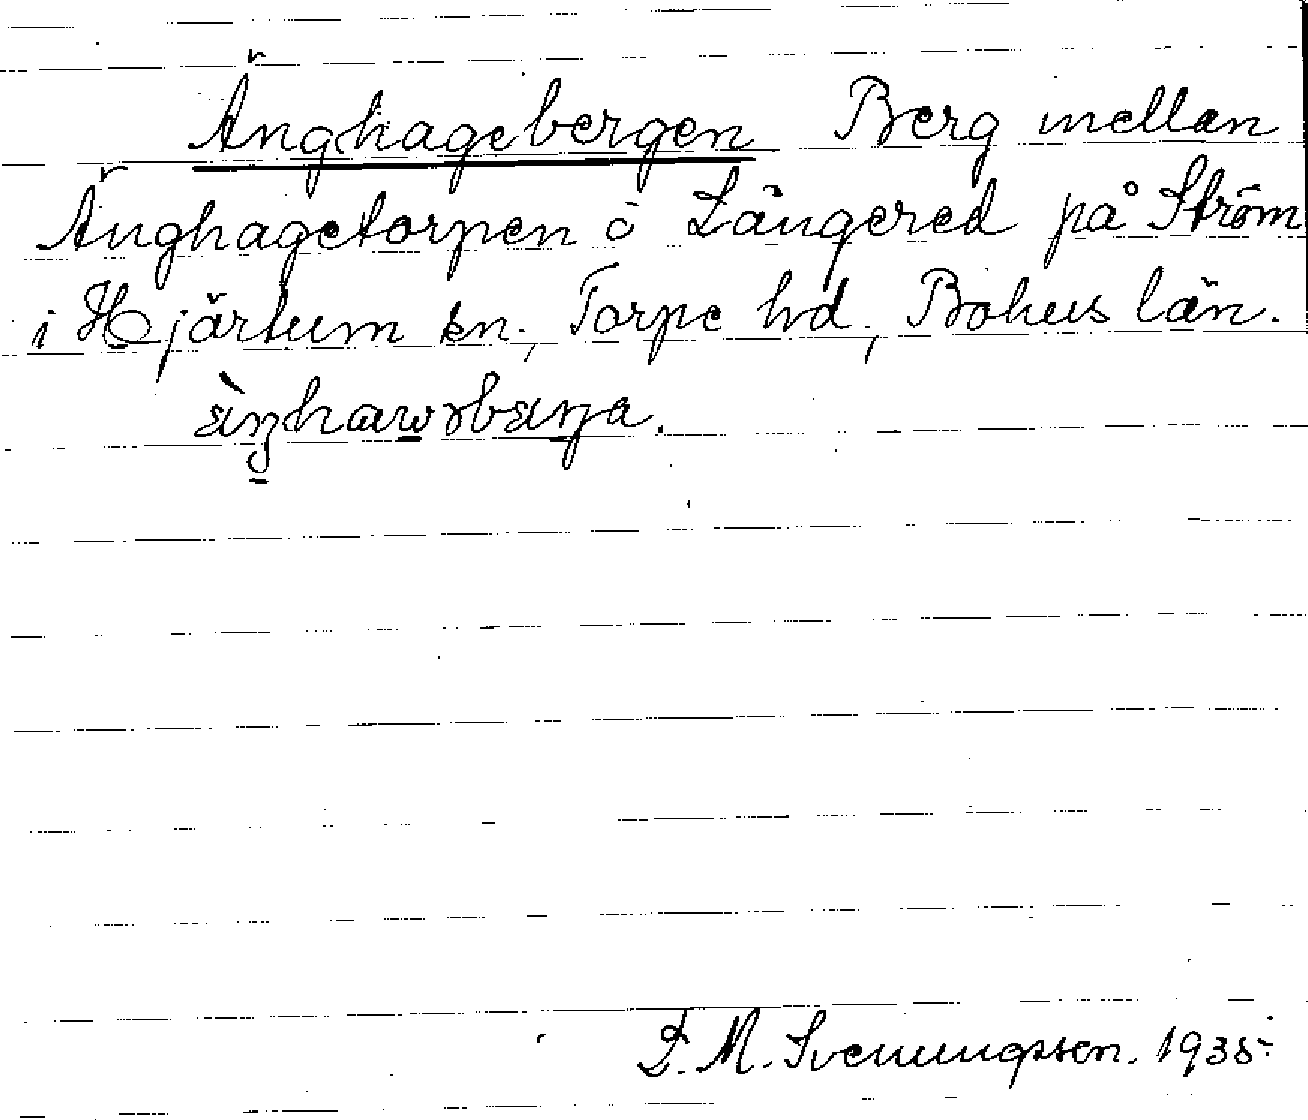 Änghagebergen Berg mellan
Änghagetorpen o Långered på Ström
i Hjärtum sn, Torpe hd, Bohus län.
F. M. Svenungsson. 1935.